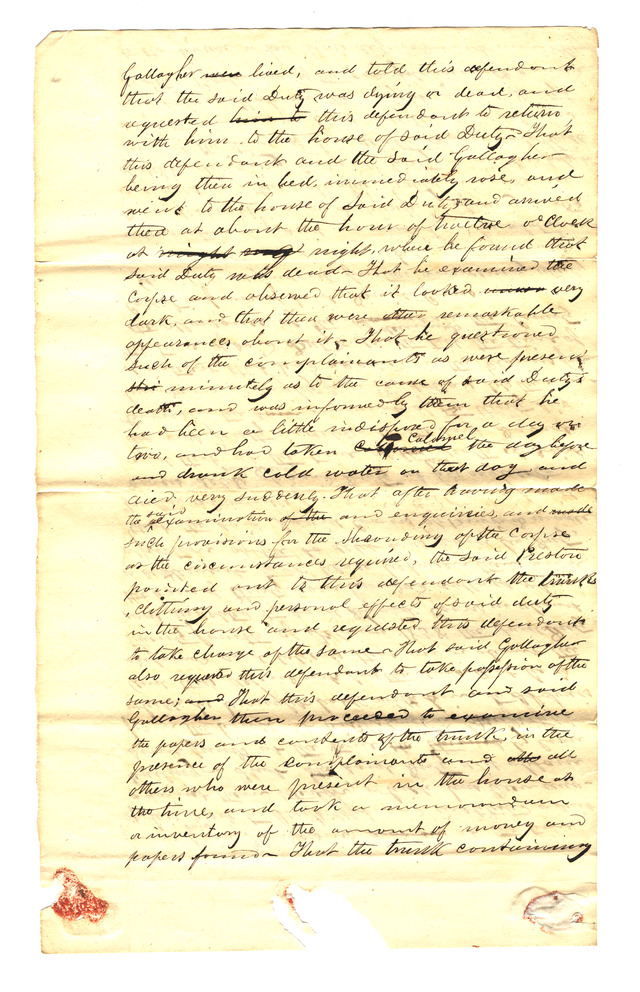 Gallagher were lived, and told this defendant
that the said Duty was dying or dead, and
requested him to this defendant to return
with him to the house of said Duty – That
this defendant and the said Gallagher
being then in bed, immediately rose, and
went to the house of said Duty and arrived
there at about the hour of twelve o'Clock
at night, where he found that
said Duty was dead – That he examined the
Corpse and observed that it looked very
dark, and that there were other remarkable
appearances about it – That he questioned
such of the complainants as were present
minutely as to the cause of said Duty's
death, and was informed by them that he
had been a little indisposed for a day or
two, and had taken Calomel the day before
and drank cold water on that day and
died very suddenly. That after having made
the said examination of the and enquiries, and made
such provisions for the shrouding of the Corpse
as the circumstances required, the said Preston
pointed out to this defendant the trunks
, clothing and personal effects of said duty
in the house and requested this defendant
to take charge of the same – That said Gallagher
also requested this defendant to take possession of the
same; and That this defendant and said
Gallagher then proceeded to examine
the papers and contents of the trunk, in the
presence of the complainants and all
others who were present in the house at
the time, and took a memorandum
or inventory of the amount of money and
papers found – That the trunk containing